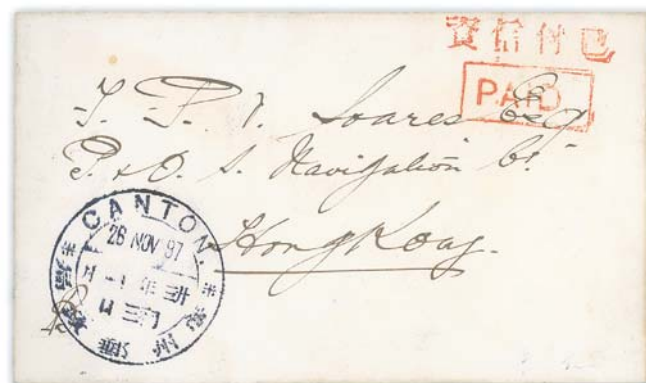 已付信資
PAID
Soares Esq
P. & O. S. Navigation Co.
HongKong.
CANTON.
26 NOV 97